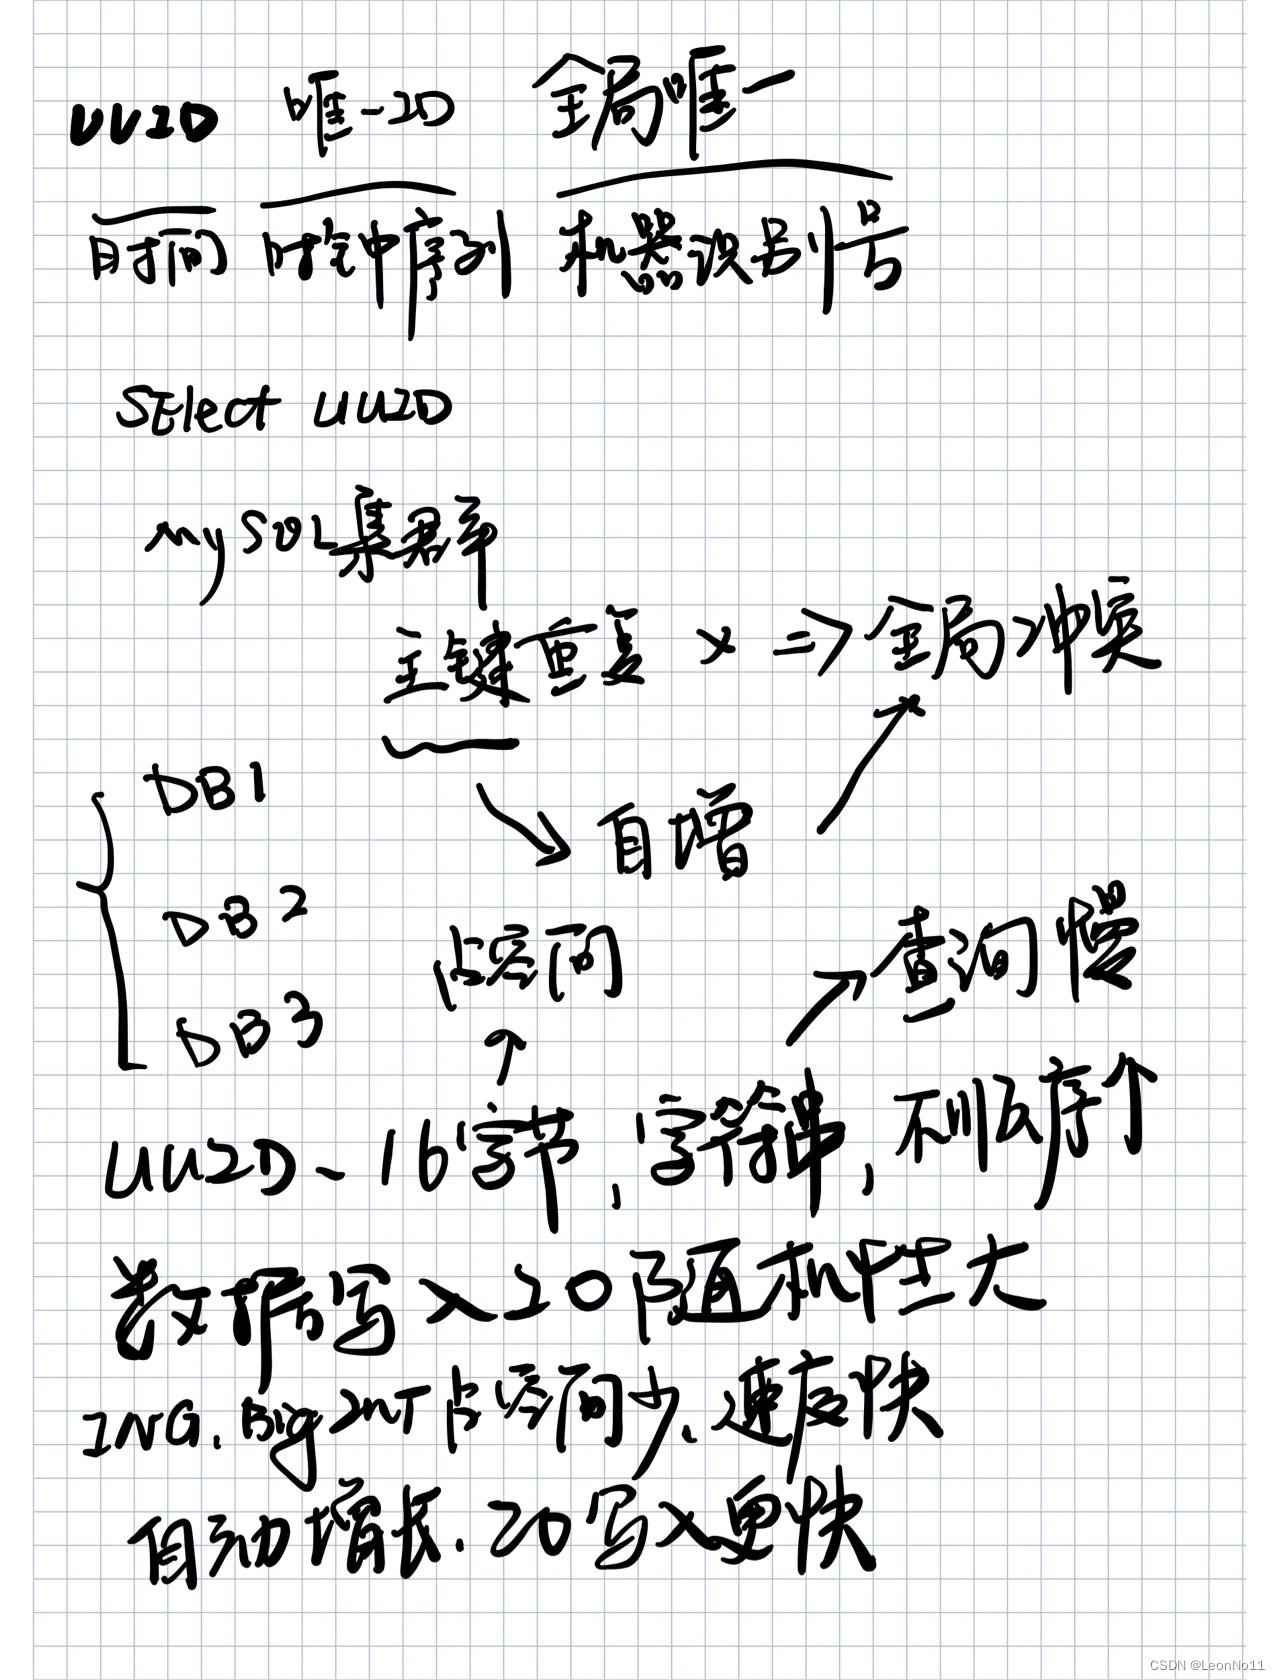 UUID 唯一ID 全局唯一
时间 时钟序列 机器识别号
SElect UUID
MySQL集群
主键重复 x => 全局冲突
DB1
自增
DB2
占空间
查询慢
DB3
UUID、16字节,字符串,不顺序个
数据写入IO随机性大
ING、BigInT占空间少、速度快
自动增长、IO写入更快
CSDN @LeonNo11